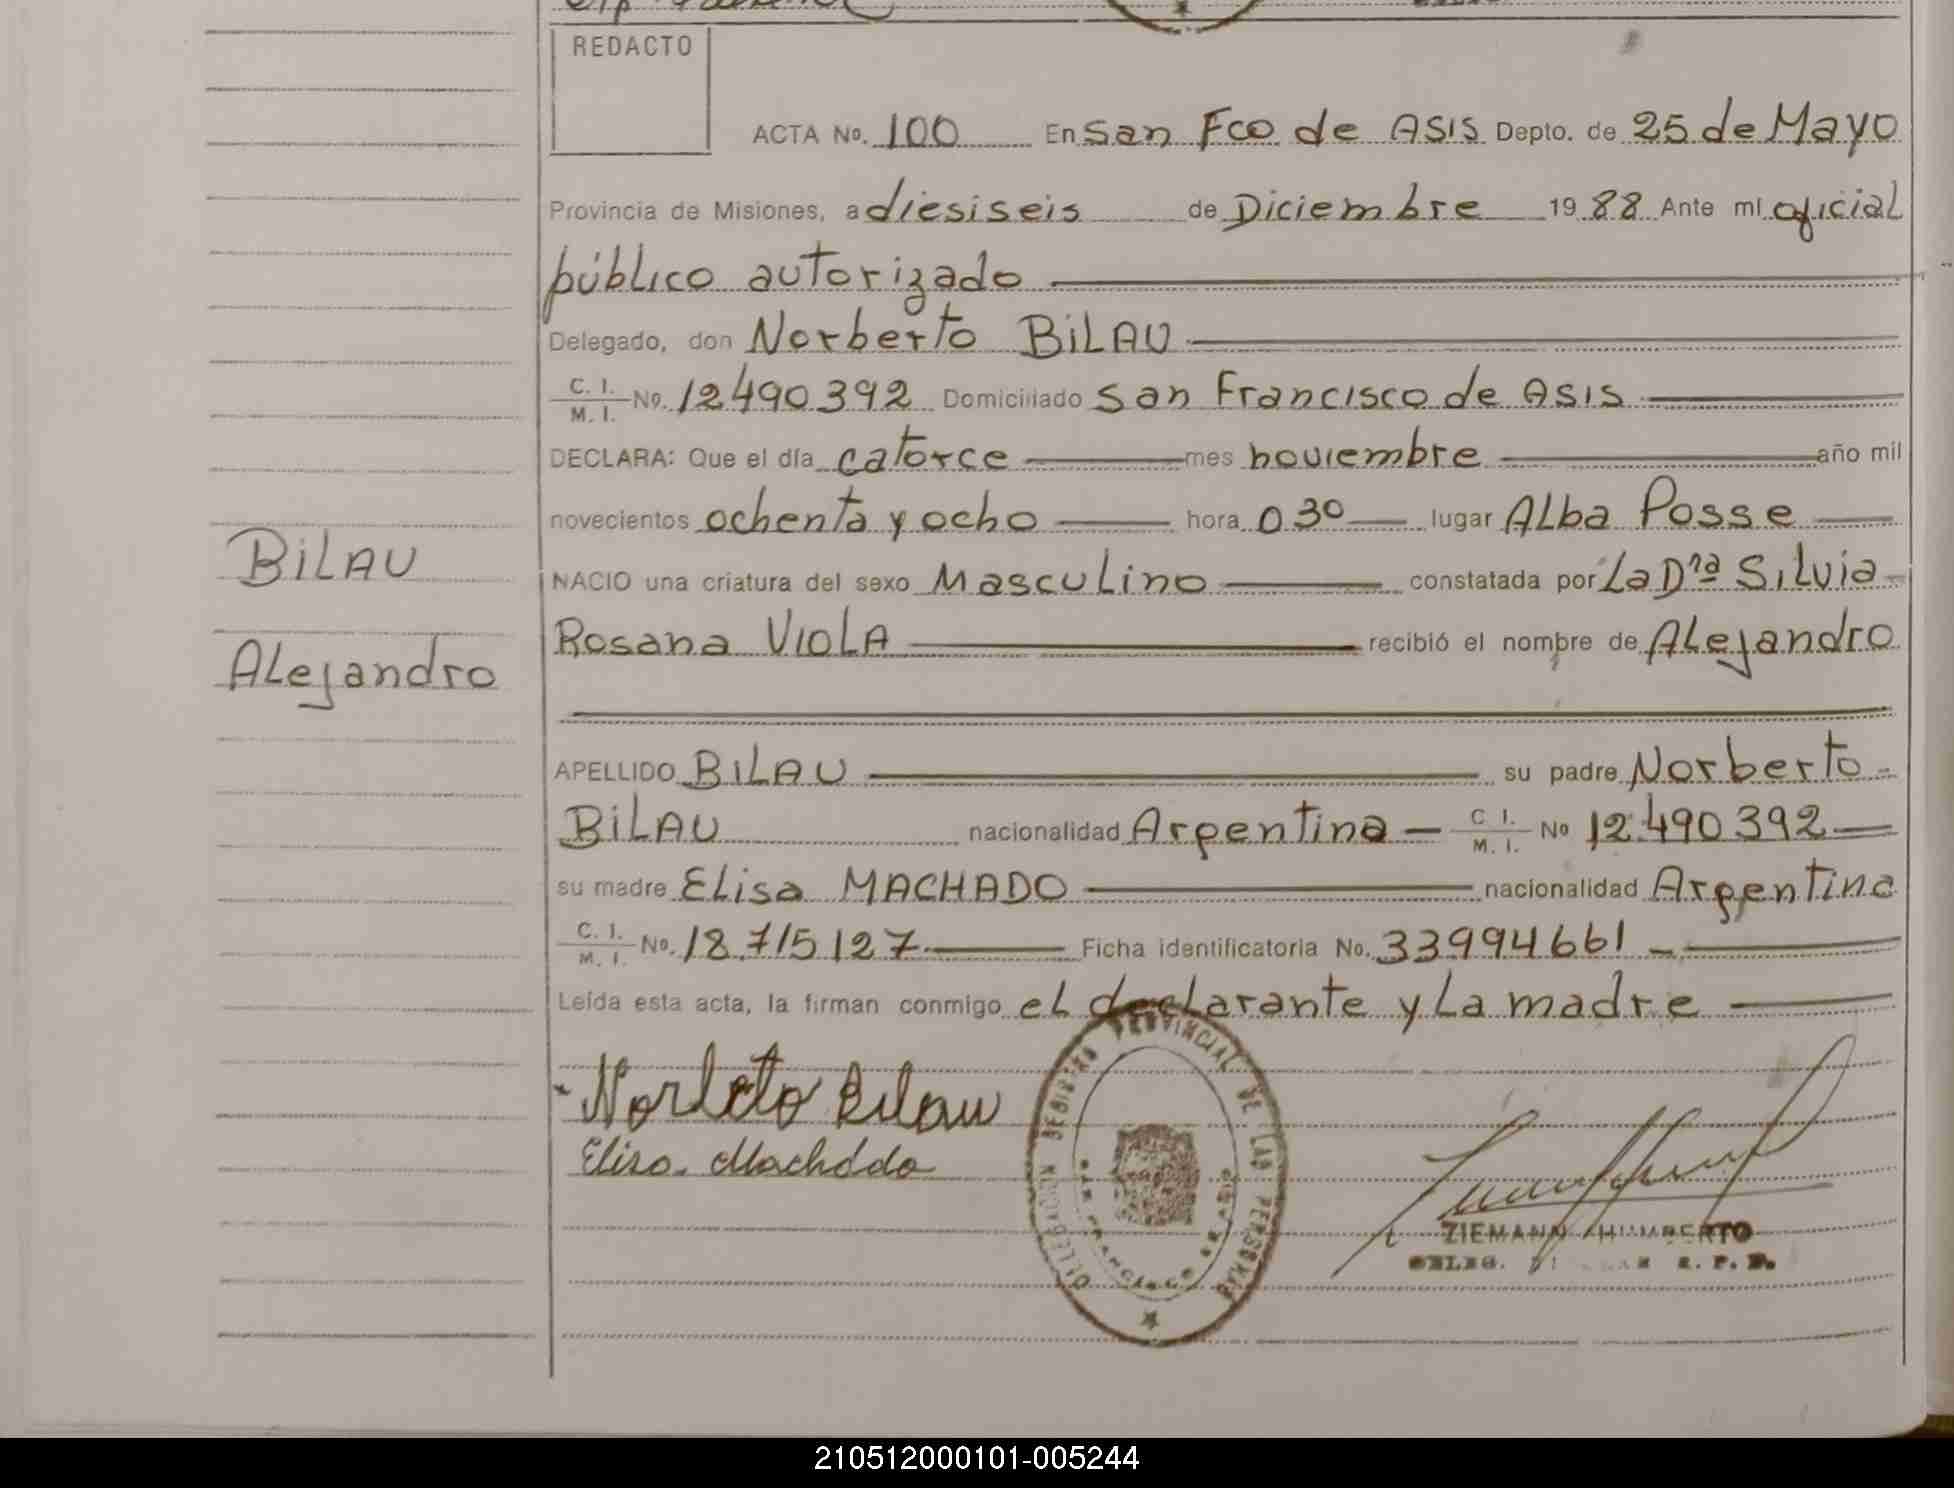 REDACTO
ACTA No. 100 En San Fco de ASIS Depto. de 25 de Mayo
Provincia de Misiones, a diesiseis de Diciembre 19 88 Ante mí oficial
público autorizado
Delegado, don Norberto BiLAU
C. I. / M. I. No. 12490392 Domiciliado San Francisco de ASIS
DECLARA: Que el día catorce mes noviembre año mil
novecientos ochenta y ocho hora 0 30 lugar Alba Posse
NACIO una criatura del sexo Masculino constatada por La Dra Silvia
Rosana VIOLA recibió el nombre de Alejandro
APELLIDO BiLAU su padre Norberto
BiLAU nacionalidad Argentina C I. / M. I. No 12.490 392
su madre Elisa MACHADO nacionalidad Argentina
C. I. / M. I. No. 18.715127 Ficha identificatoria No. 33994661
Leída esta acta, la firman conmigo el declarante y La madre
BiLAU
Alejandro
Norberto Bilau
Elisa Machado
DELEGACION REGISTRO PROVINCIAL DE LAS PERSONAS
FRANCISCO DE ASIS
ZIEMANN HUMBERTO
DELEG. R. P. P.
210512000101-005244